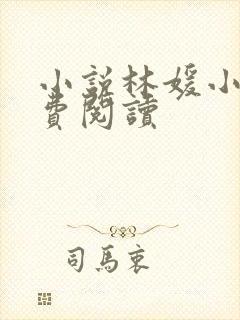 小說林媛小
費閱讀
司馬衷